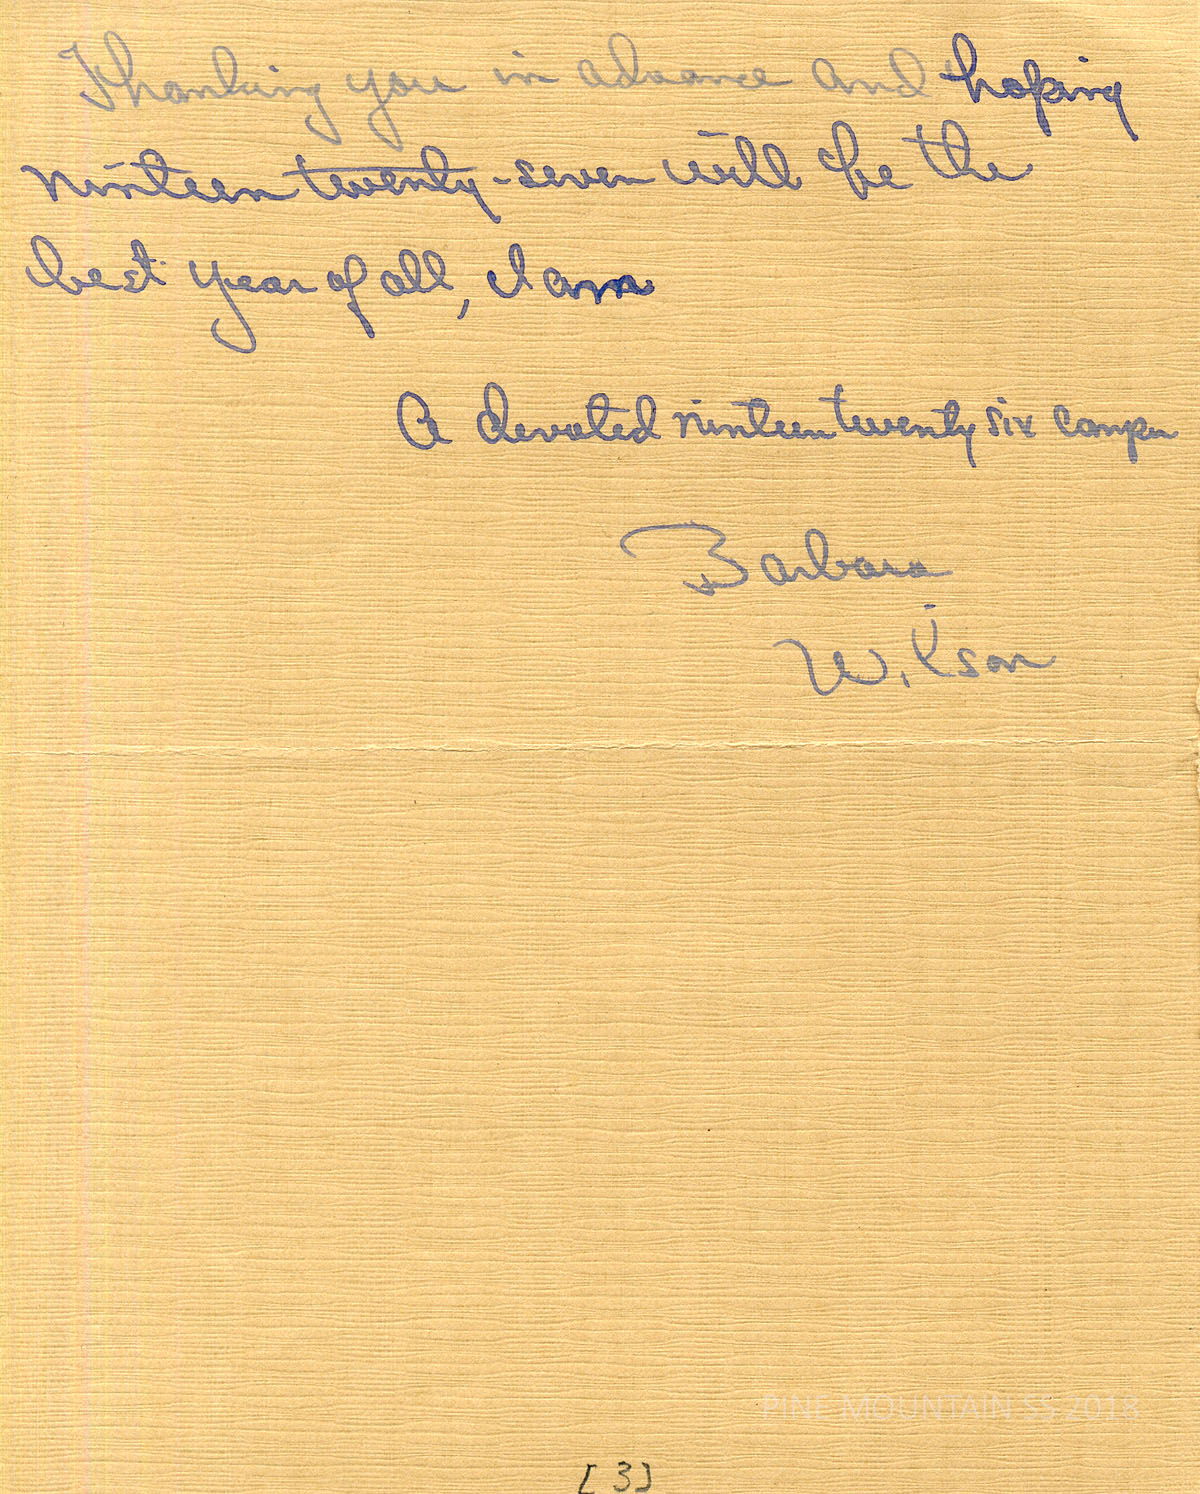 Thanking you in advance and hoping
nineteen twenty-seven will be the
best year of all, I am
A devoted nineteen twenty six camper
Barbara
Wilson
PINE MOUNTAIN SS 2018
[3]